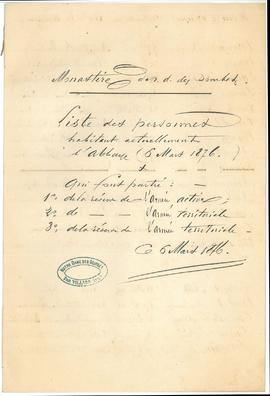 Monastère de n. d. des Dombes.
Liste des personnes
habitant actuellement
l'abbaye (6 Mars 1876.)
Qui font partie : —
1º de la réserve de l'armée active ;
2º de — — l'armée territoriale
3º de la réserve de l'armée territoriale —
6 Mars 1876.
NOTRE DAME DES DOMBES
PAR VILLARS